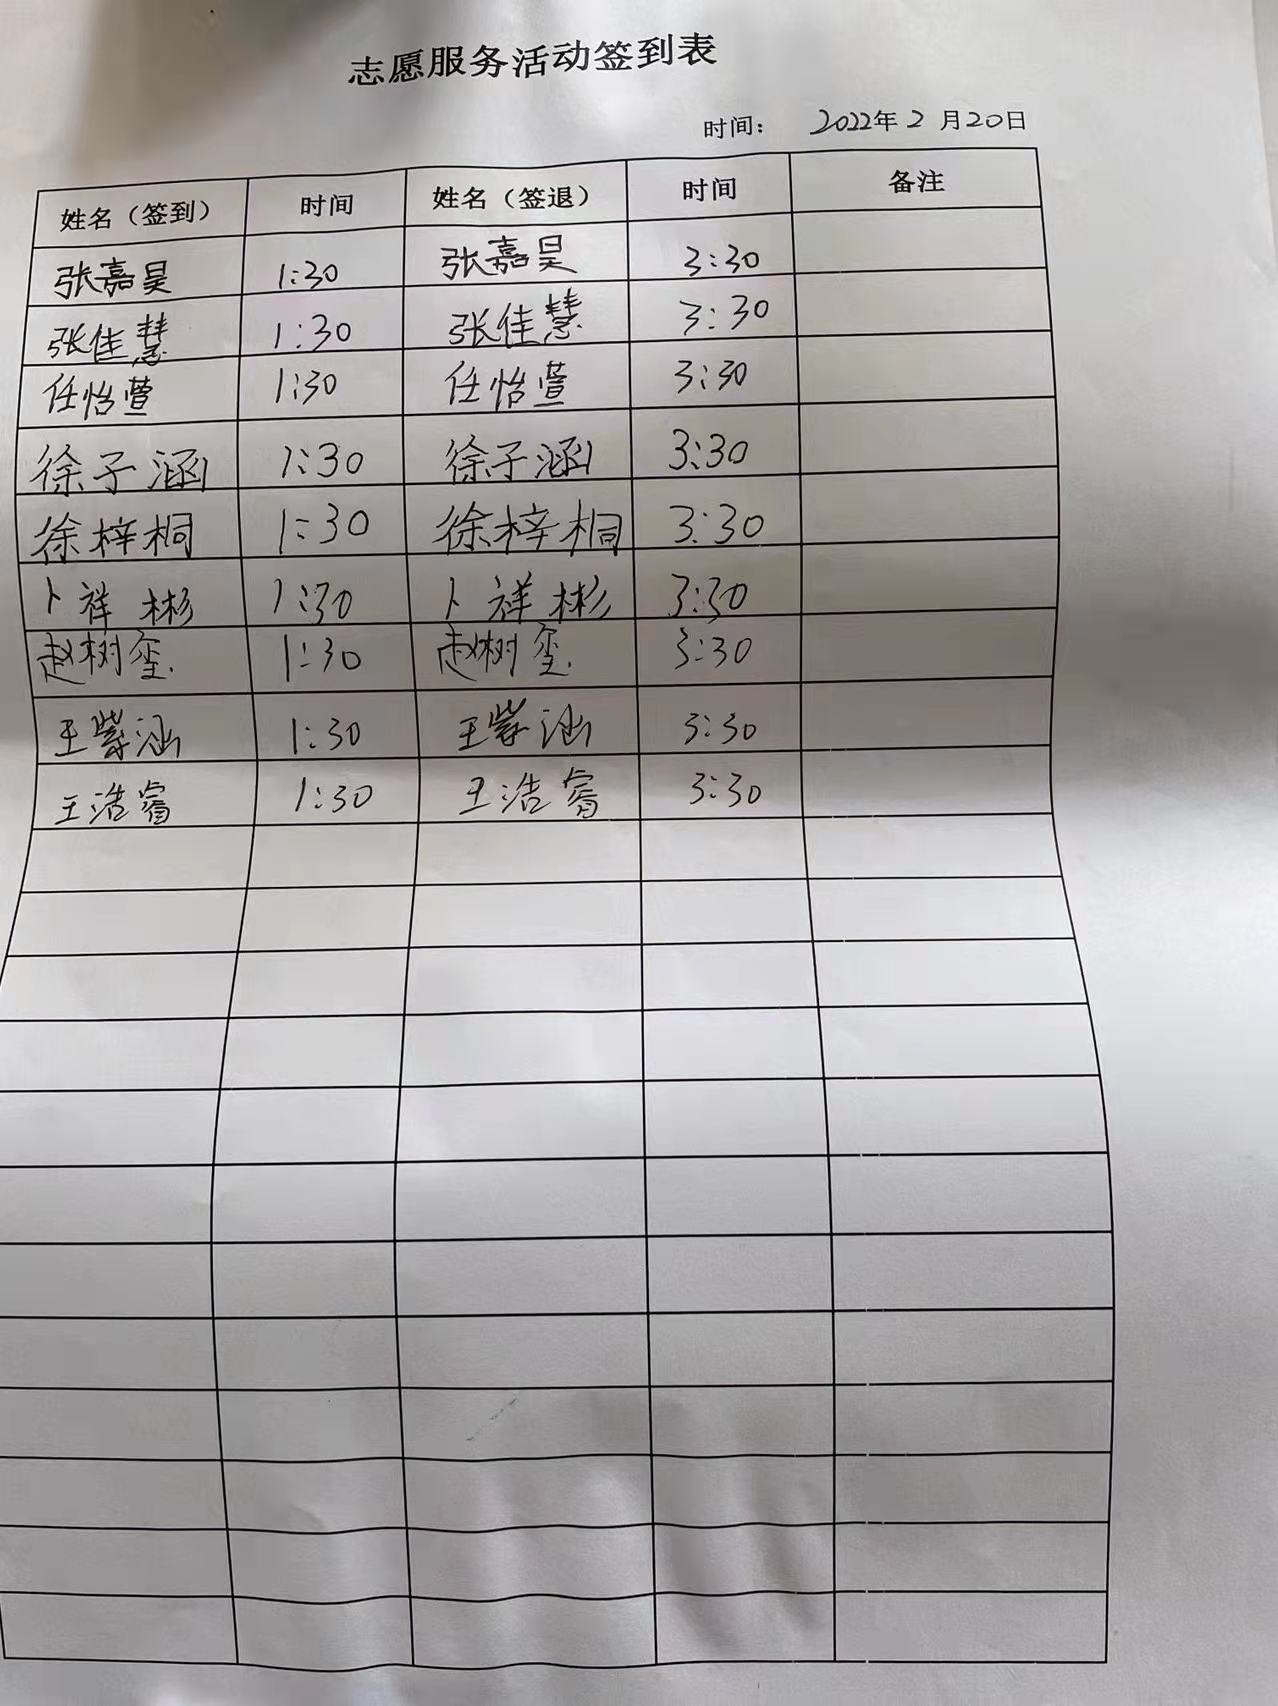 志愿服务活动签到表
时间： 2022年2月20日
姓名（签到） 时间 姓名（签退） 时间 备注
张嘉昊 1:30 张嘉昊 3:30
张佳慧 1:30 张佳慧 3:30
任怡萱 1:30 任怡萱 3:30
徐子涵 1:30 徐子涵 3:30
徐梓桐 1:30 徐梓桐 3:30
卜祥彬 1:30 卜祥彬 3:30
赵树玺 1:30 赵树玺 3:30
王紫涵 1:30 王紫涵 3:30
王浩睿 1:30 王浩睿 3:30